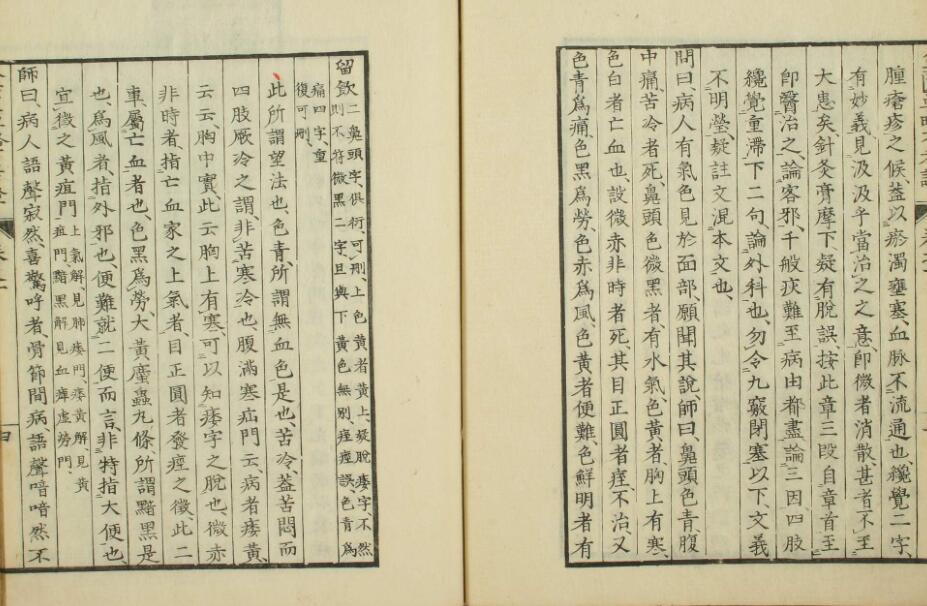 腫瘡疹之候、蓋以瘀濁壅塞、血脉不流通也、纔覺二字、
有妙義、見汲汲乎當治之之意、卽微者消散、甚者不至
大患矣、針灸膏摩下、疑有脫誤、按此章三段、自章首至
卽醫治之、論客邪、千般疢難至病由都盡、論三因、四肢
纔覺重滯下二句、論外科也、勿令九竅閉塞以下、文義
不明瑩、疑註文混本文也、
問曰、病人有氣色見於面部、願聞其說、師曰、鼻頭色青、腹
中痛、苦冷者死、鼻頭色微黑者、有水氣、色黃者、胸上有寒、
色白者亡血也、設微赤非時者死、其目正圓者痓、不治、又
色青爲痛、色黑爲勞、色赤爲風、色黃者便難、色鮮明者有
留飲、二鼻頭字、俱衍、可刪、上色黃者黃上、疑脫痿字、不然
則不符微黑二字、且與下黃色無別、痓痙誤、色青爲
痛四字、重
復可刪、
此所謂望法也、色青、所謂無血色是也、苦冷、蓋苦悶而
四肢厥冷之謂、非苦寒冷也、腹滿寒疝門云、病者痿黃、
云云、胸中寒實、此云胸上有寒、可以知痿字之脫也、微赤
非時者、指亡血家之上氣者、目正圓者、發痙之徵、此二
事、屬亡血者也、色黑爲勞、大黃䗪蟲丸條、所謂黯黑是
也、爲風者、指外邪也、便難、就二便而言、非特指大便也、
宜徵之黃疸門、上氣解、見肺痿門、痿黃解、見黃
疸門、黯黑解、見血痺虛勞門、
師曰、病人語聲寂然、喜驚呼者、骨節間病、語聲喑喑然不